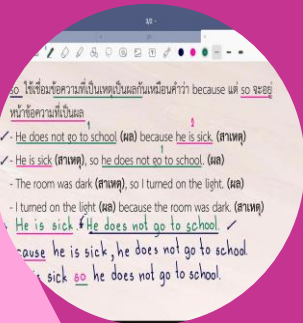 3/3
so ใช้เชื่อมข้อความที่เป็นเหตุเป็นผลกันเหมือนคำว่า because แต่ so จะอยู่
หน้าข้อความที่เป็นผล
1 2
- He does not go to school (ผล) because he is sick. (สาเหตุ)
1
- He is sick (สาเหตุ), so he does not go to school. (ผล)
- The room was dark (สาเหตุ), so I turned on the light. (ผล)
- I turned on the light (ผล) because the room was dark. (สาเหตุ)
He is sick. He does not go to school.
cause he is sick, he does not go to school.
sick so he does not go to school.